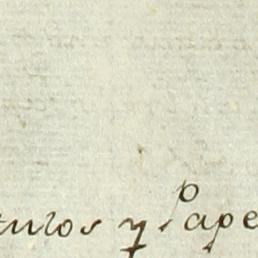 tulos y Pape